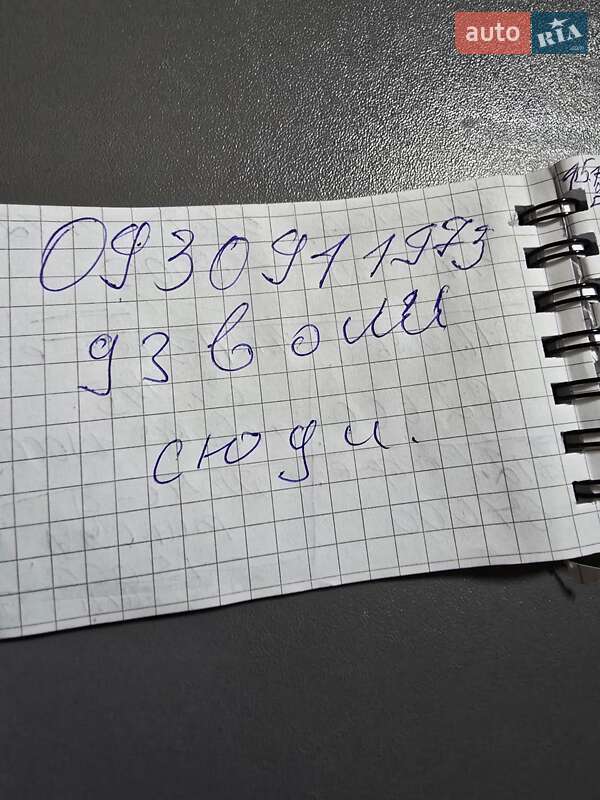 auto RIA.com
0930911973
дзвоти
сюди.